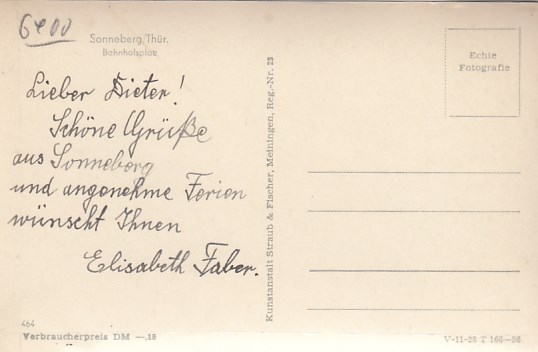 6400
Sonneberg/Thür.
Bahnhofsplatz
Lieber Dieter!
Schöne Grüße
aus Sonneberg
und angenehme Ferien
wünscht Ihnen
Elisabeth Faber.
464
Verbraucherpreis DM —,18
Kunstanstalt Straub & Fischer, Meiningen, Reg.-Nr. 23
Echte
Fotografie
V-11-28 T 166-56